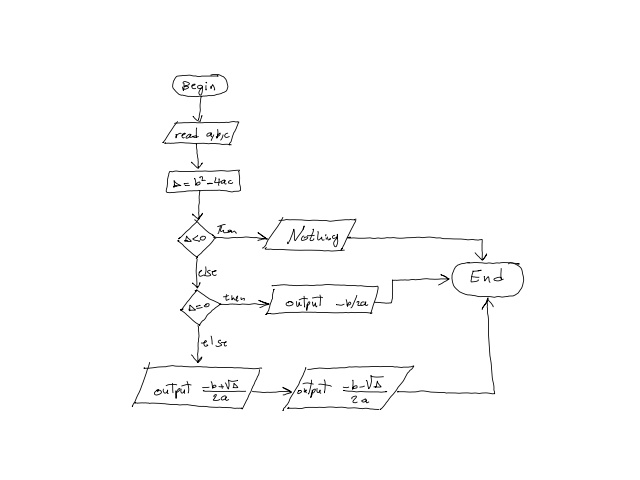 Begin
read a,b,c
Δ = b² - 4ac
Δ<0
Then
Nothing
else
Δ=0
then
output -b/2a
End
else
output (-b+√Δ)/2a
output (-b-√Δ)/2a